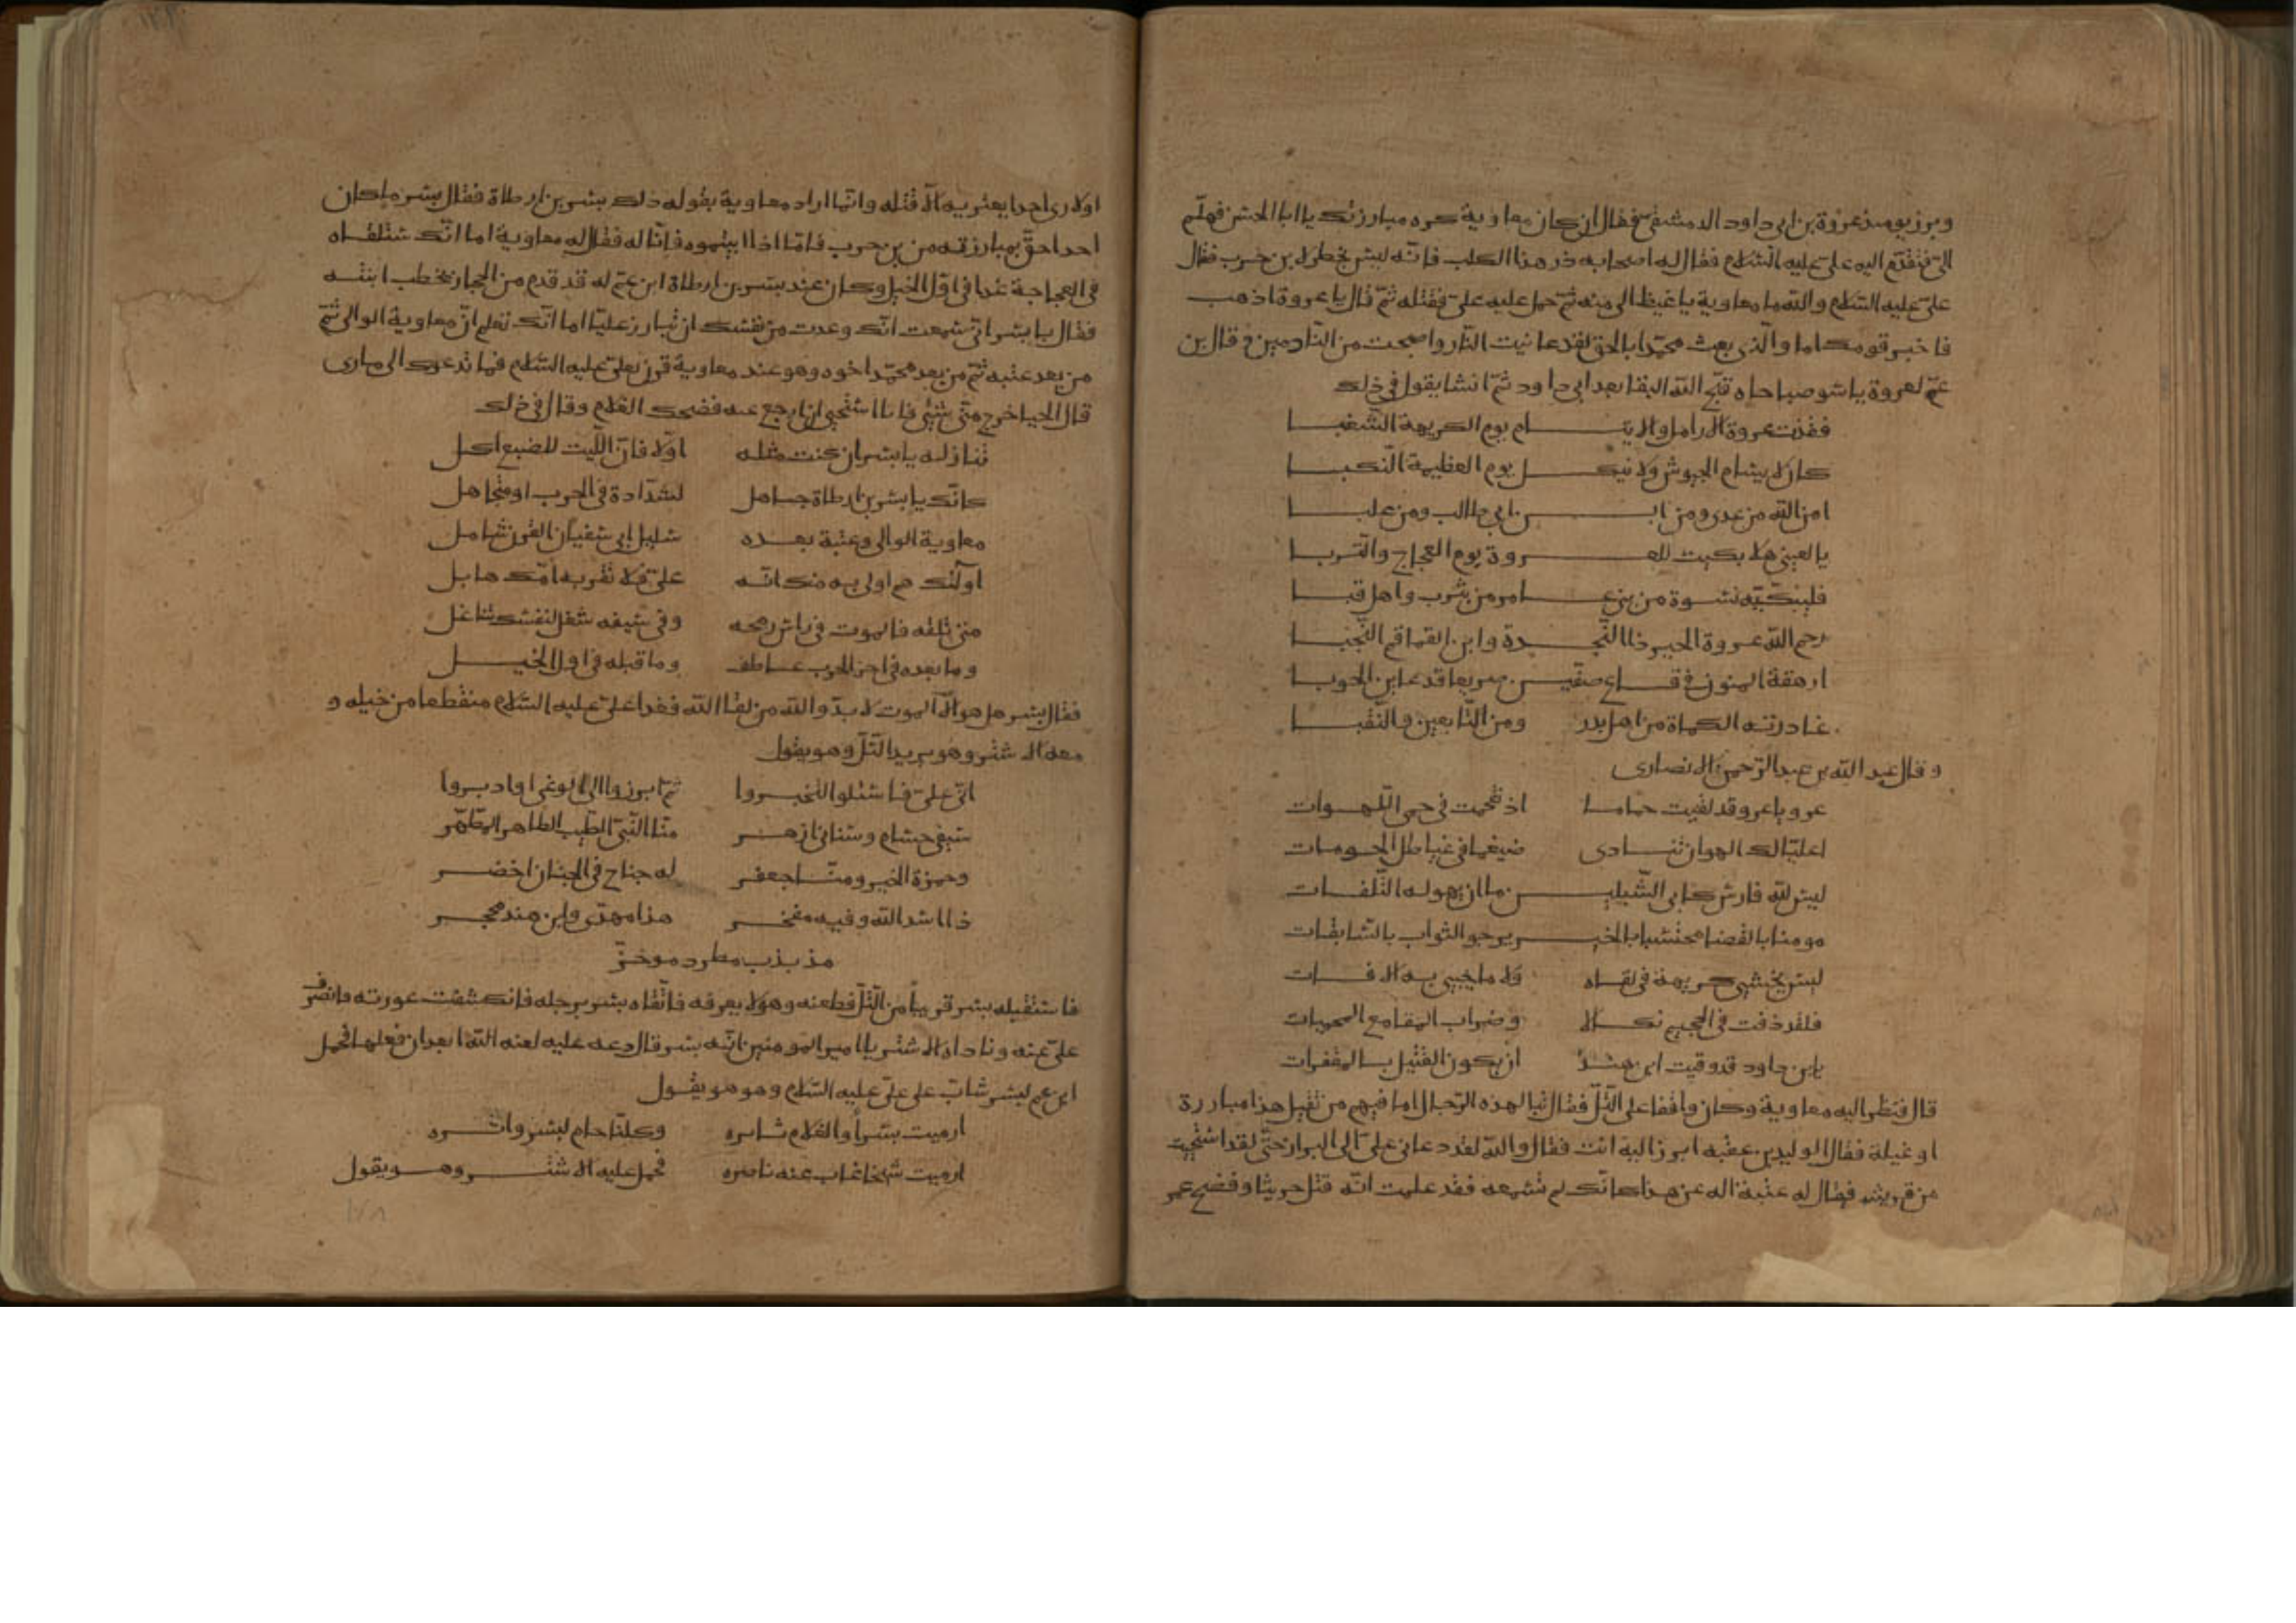 وبرز يومئذ عروة بن ابي داود الدمشقى فقال ان كان معاوية كره مبارزتك يا ابا الحسن فهلم
الىّ فتقدّم اليه علىّ عليه السّلام فقال له اصحابه ذر هذا الكلب فانّه ليس بخطر لا بن حرب فقال
علىّ عليه السّلام والله ما معاوية باغيظ الى منه ثمّ حمل عليه علىّ فقتله ثمّ قال يا عروة اذهب
فاخبر قومك اما والّذى بعث محمّدا بالحق لقد عاينت النّار واصبحت من النّادمين وقال بن
عمّ لعروة يا سو صباحاه قبّح الله البقا بعد ابى داود ثمّ انشا يقول فى ذلك
فقدت عروة الارامل والايتام يوم الكريهة الشّغبا
كان لا يشتم الجيوش ولا ينكل يوم العظيمة النّكبا
امن الله من عدى ومن ابن ابى طالب ومن علبا
يا لعينى هلا بكيت للعروة يوم العجاج والتّربا
فليبكيّه نسوة من بنى عامر من يثرب واهل قبا
رحم الله عروة الخير ذا النّجدة وابن القماقم النّجبا
ارهقة المنون فى قاع صفّين صريعا قد غاب الحوبا
غادرته الكماة من اهل بدر ومن التّابعين والنّقبا
وقال عبد الله بن عبد الرّحمن الانصارى
عرو يا عرو قد لقيت حماما اذ تقحمت فى حمى اللّهوات
اعليّا لك الهوان تنادى ضيغما فى غياطل الحومات
ليس لله فارس كابى الشّبلين ما ان يهوله التّلفات
مومنا بالقضا محتسبا بالخير يرجو الثواب بالسّابقات
ليس يخشى كريهة فى لقاه ولا ما يجيى به الافات
فلقد ذقت فى الجحيم نكالا وضراب المقامع المحميات
يابن داود قد وقيت ابن هند ان يكون القتيل بالمقفرات
قال فنظر اليه معاوية وكان واقفا على التّل فقال تبا لهذه الرّجال اما فيهم من يقتل هذا مبارزة
او غيلة فقال الوليد بن عقبه ابرز اليه انت فقال والله لقد دعانى علىّ الى البراز حتّى لقد استحييت
من قريش فقال له عتبة اله عن هذا كانّك لم تسمعه فقد علمت انّه قتل حريثا وفضح عمر
اولا رى احدا يعترى به الّا قتله وانّما اراد معاوية بقوله ذلك بسر بن ارطاة فقال بسر ما كان
احد احقّ بمبارزته من بن حرب فامّا اذا ابيتموه فانّا له فقال له معاوية اما انّك ستلقاه
فى العجاجة غدا فى اوّل الخيل وكان عند بسر بن ارطاة ابن عمّ له قد قدم من الحجاز يخطب ابنته
فقال يا بسر انّى سمعت انّك وعدت من نفسك ان تبارز عليّا اما انّك تعلم انّ معاوية الوالى ثمّ
من بعد عتبه ثمّ من بعد محمّد اخوه وهو عند معاوية قرن لعلىّ عليه السّلام فما تدعوك الى ما رى
قال الحيا خرج منّى شئ فانا استحيى ان ارجع عنه فضحك الغلام وقال فى ذلك
تنازله يا بسر ان كنت مثله اولا فانّ اللّيث للضبع اكل
كانّك يا بسر بن ارطاة جاهل لشدّادة فى الحرب او متجاهل
معاوية الوالى وعتبة بعده سليل ابى سفيان الغى شامل
اولئك هم اولى به منك انّه علىّ فلا تقربه امّك هابل
متى تلقه فالموت فى راس رمحه وفى سيفه شغل لنفسك شاغل
وما بعده فى اخر الحرب عاطف وما قبله فى اول الخيل
فقال بسر هل هو الّا الموت لا بدّ والله من لقا الله فغدا علىّ عليه السّلام منقطعا من خيله و
معه الاشتر وهو يريد التّلّ وهو يقول
انّى علىّ فاسئلوا لتخبروا ثمّ ابرزوا الى الوغى او ادبروا
سيفى حسام وسنانى ازهر منّا النّبىّ الطّيب الطاهر المطهّر
وحمزة الخير ومنّا جعفر له جناح فى الجنان اخضر
ذا اسد الله وفيه مفخر هذا مهدى وابن هند محجر
مذبذب مطرد موخرّ
فاستقبله بسر قريباً من التّلّ فطعنه وهو لا يعرفه فاتّقاه بسر برجله فانكشفت عورته فانصرف
علىّ عنه وناداه الاشتر يا امير المومنين انّه بسر قال دعه عليه لعنه الله ابعد ان فعلها فحمل
ابن عم لبسر شابّ على علىّ عليه السّلام وهو هو يقول
ارميت بسراً والغلام ثايره وكلنا حام لبسر واتره
ارميت شيخا غاب عنه ناصره فحمل عليه الاشتر وهو يقول
١٧٨